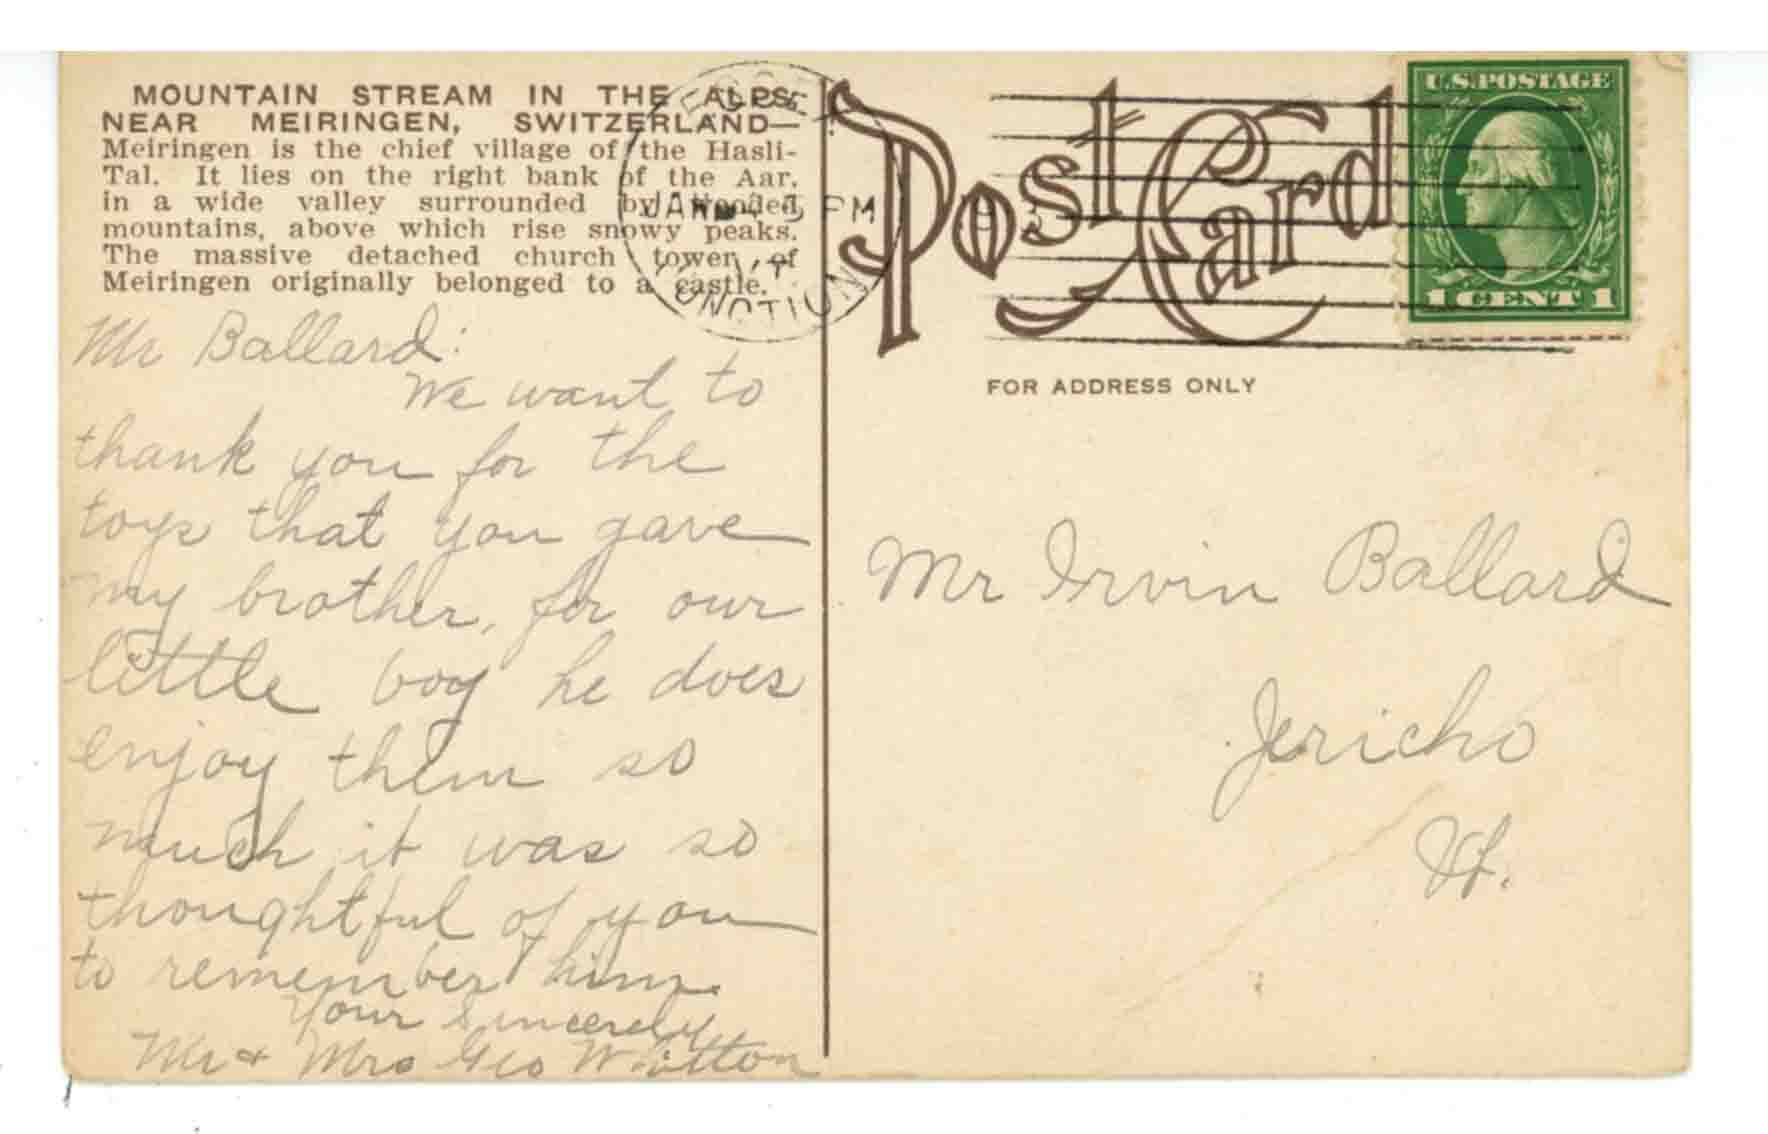 MOUNTAIN STREAM IN THE ALPS,
NEAR MEIRINGEN, SWITZERLAND—
Meiringen is the chief village of the Hasli-
Tal. It lies on the right bank of the Aar,
in a wide valley surrounded by wooded
mountains, above which rise snowy peaks.
The massive detached church tower of
Meiringen originally belonged to a castle.
Mr Ballard:
We want to
thank you for the
toys that you gave
my brother, for our
little boy he does
enjoy them so
much it was so
thoughtful of you
to remember him.
Your Sincerely
Mr & Mrs Geo
ESSEX
JAN PM
JUNCTION
Post Card
U.S. POSTAGE
1 CENT 1
FOR ADDRESS ONLY
Mr Irvin Ballard
Jericho
Vt.